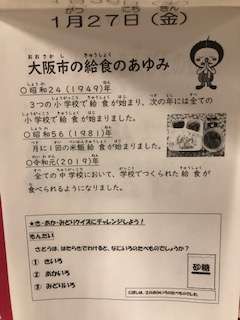 1月27日(金)
がつ にち きん
おおさかし きゅうしょく
大阪市の給食のあゆみ
○昭和24(1949)年
3つの小学校で給食が始まり、次の年には全ての
小学校で給食が始まりました。
○昭和56(1981)年
月に1回の米飯給食が始まりました。
○令和元(2019)年
全ての中学校において、学校でつくられた給食が
食べられるようになりました。
★き・あか・みどりクイズにチャレンジしよう!
もんだい
さとうは、はたらきでわけると、なにいろのたべものでしょうか?
① きいろ
② あかいろ
③ みどりいろ
砂糖